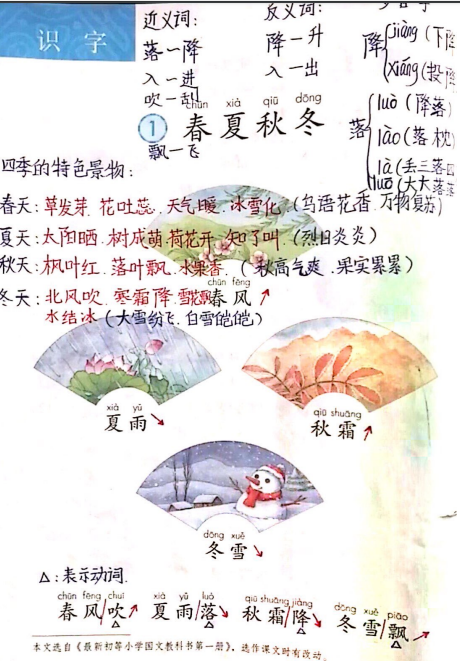 识字
近义词:
落—降
入—进
吹—乱
飘—飞
反义词:
降—升
入—出
多音字
降 jiàng (下降
xiáng (投降
落 luò (降落)
lào (落枕)
là (丢三落四
luō (大大落落
chūn xià qiū dōng
1 春夏秋冬
四季的特色景物:
春天: 草发芽. 花吐蕊. 天气暖. 冰雪化. (鸟语花香. 万物复苏)
夏天: 太阳晒. 树成荫. 荷花开. 知了叫. (烈日炎炎)
秋天: 枫叶红. 落叶飘. 水果香. (秋高气爽. 果实累累)
冬天: 北风吹. 寒霜降. 雪花飘
水结冰 (大雪纷飞. 白雪皑皑)
chūn fēng
春风
xià yǔ
夏雨
qiū shuāng
秋霜
dōng xuě
冬雪
△: 表示动词.
chūn fēng chuī xià yǔ luò qiū shuāng jiàng dōng xuě piāo
春风/吹 夏雨/落 秋霜/降 冬雪/飘
本文选自《最新初等小学国文教科书第一册》，选作课文时有改动。